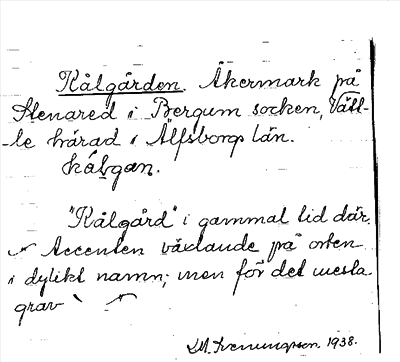 Kålgården. Åkermark på
Stenared i Bergum socken, Vätt-
-le härad i Älfsborgs län.
kǻlgan.
"Kålgård" i gammal tid där.
Accenten växlande på orten
i dylikt namn; men för det mesta
grav `
K.M. Svenungsson. 1938.